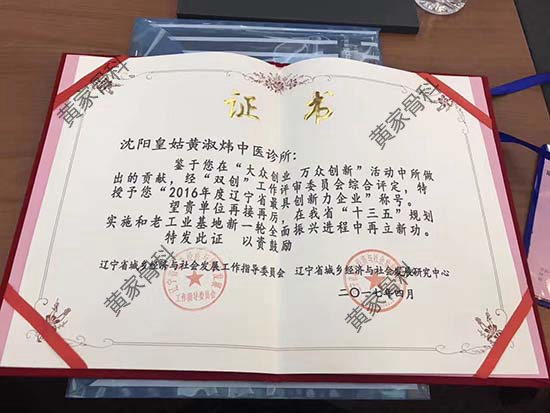 证书
沈阳皇姑黄淑炜中医诊所：
鉴于您在“大众创业 万众创新”活动中所做
出的贡献，经“双创”工作评审委员会综合评定，特
授予您“2016年度辽宁省最具创新力企业”称号。
望贵单位再接再厉，在我省“十三五”规划
实施和老工业基地新一轮全面振兴进程中再立新功。
特发此证 以资鼓励
辽宁省城乡经济与社会发展工作指导委员会 辽宁省城乡经济与社会发展研究中心
工作指导委员会
二〇一七年四月
黄家骨科
黄家骨科
黄家骨科
黄家骨科
黄家骨科